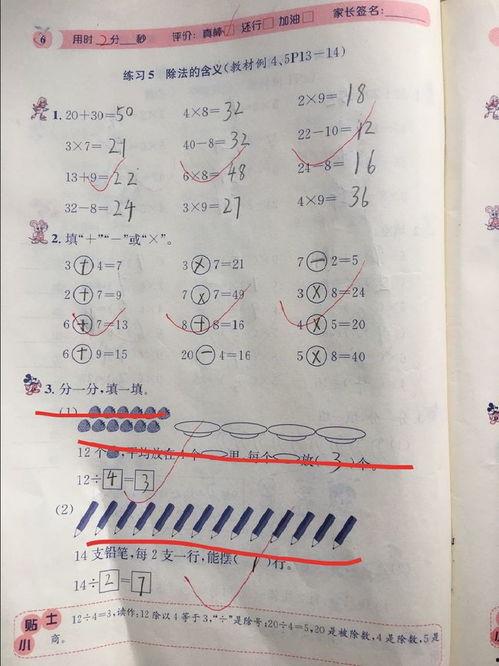 6 用时2分 秒 评价:真棒□ 还行□ 加油□ 家长签名:
练习5 除法的含义(教材例4、5P13-14)
1. 20+30=50 4×8=32 2×9=18
3×7=21 40-8=32 22-10=12
13+9=22 6×8=48 24-8=16
32-8=24 3×9=27 4×9=36
2. 填“+”“-”或“×”。
3+4=7 3×7=21 7-2=5
2+7=9 7×7=49 3×8=24
6+7=13 8+8=16 4×5=20
6+9=15 20-4=16 5×8=40
3. 分一分,填一填。
(1)
12个 ,平均放在4个 里,每个 放(3)个。
12÷4=3
(2)
14支铅笔,每2支一行,能摆( )行。
14÷2=7
小贴士 12÷4=3,读作:12除以4等于3,“÷”是除号;20÷4=5,20是被除数,4是除数,5是
商。